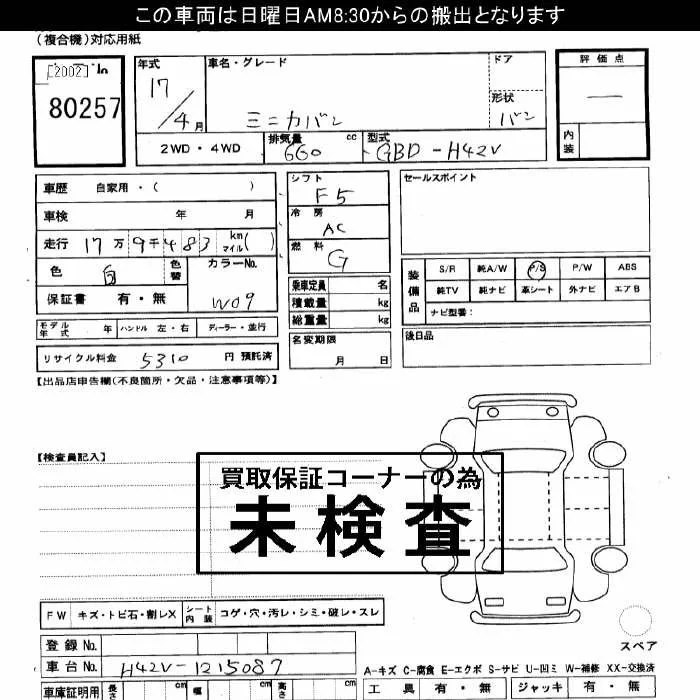 この車両は日曜日AM8:30からの搬出となります
(複合機)対応用紙
[2002]
80257
年式
17
/4月
車名・グレード
ミニカバン
ドア
形状
バン
評価点
—
内装
2WD・4WD
排気量 660 cc
型式 GBD-H42V
車歴 自家用・( )
車検 年 月
走行 17万9千483 km マイル( )
色 白 色替
カラーNo. W09
保証書 有・無
モデル年式 年 ハンドル 左・右 ディーラー・並行
リサイクル料金 5310 円 預託済
シフト F5
冷房 AC
燃料 G
乗車定員 名
積載量 kg
総重量 kg
名変期限 月 日
セールスポイント
装備品
S/R 純A/W P/S P/W ABS
純TV 純ナビ 革シート 外ナビ エアB
ナビ型番:
後日品
【出品店申告欄(不良箇所・欠品・注意事項等)】
【検査員記入】
買取保証コーナーの為
未検査
FW キズ・トビ石・割レX シート内装 コゲ・穴・汚レ・シミ・破レ・スレ
登録No.
車台No. H42V-1215087
車庫証明用 長さ cm 幅 cm 高さ cm
スペア
A-キズ C-腐食 E-エクボ S-サビ U-凹ミ W-補修 XX-交換済
工具 有・無 ジャッキ 有・無